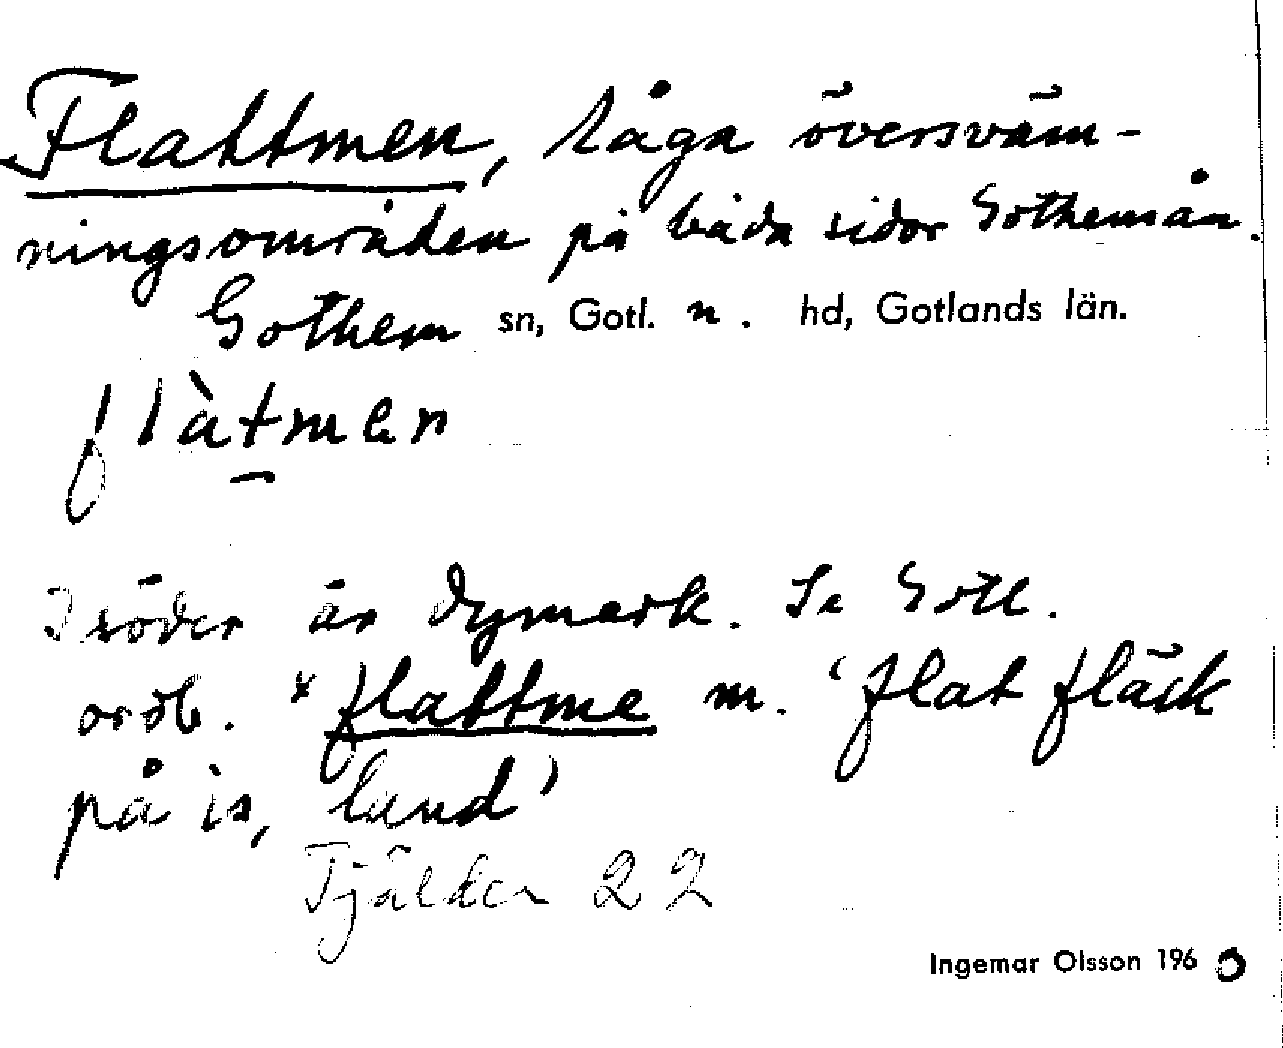 Flattmen, låga översväm-
ningsområden på båda sidor Gothemsån.
Gothem sn, Gotl. n. hd, Gotlands län.
flàtmen
I söder är dymark. Se Gotl.
ordb. *flattme m. ‘flat fläck
på is, land’
Tjälder 22
Ingemar Olsson 196